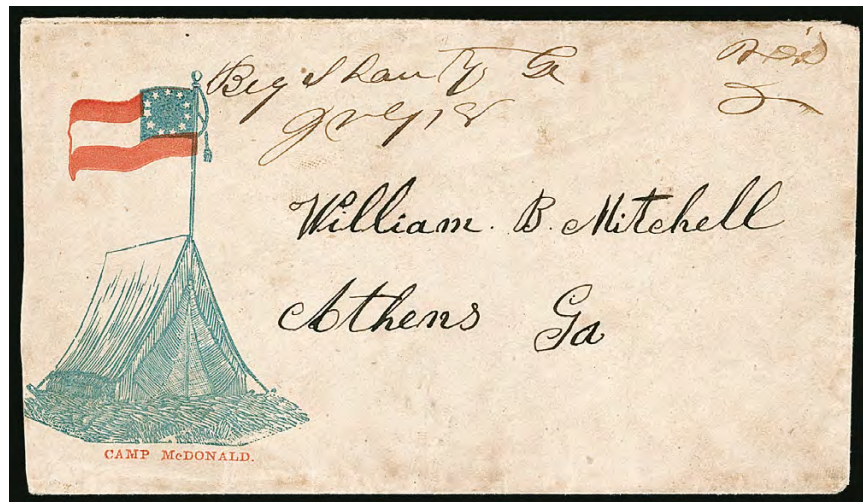 Big Shanty Ga
July 18
William. B. Mitchell
Athens Ga
CAMP McDONALD.